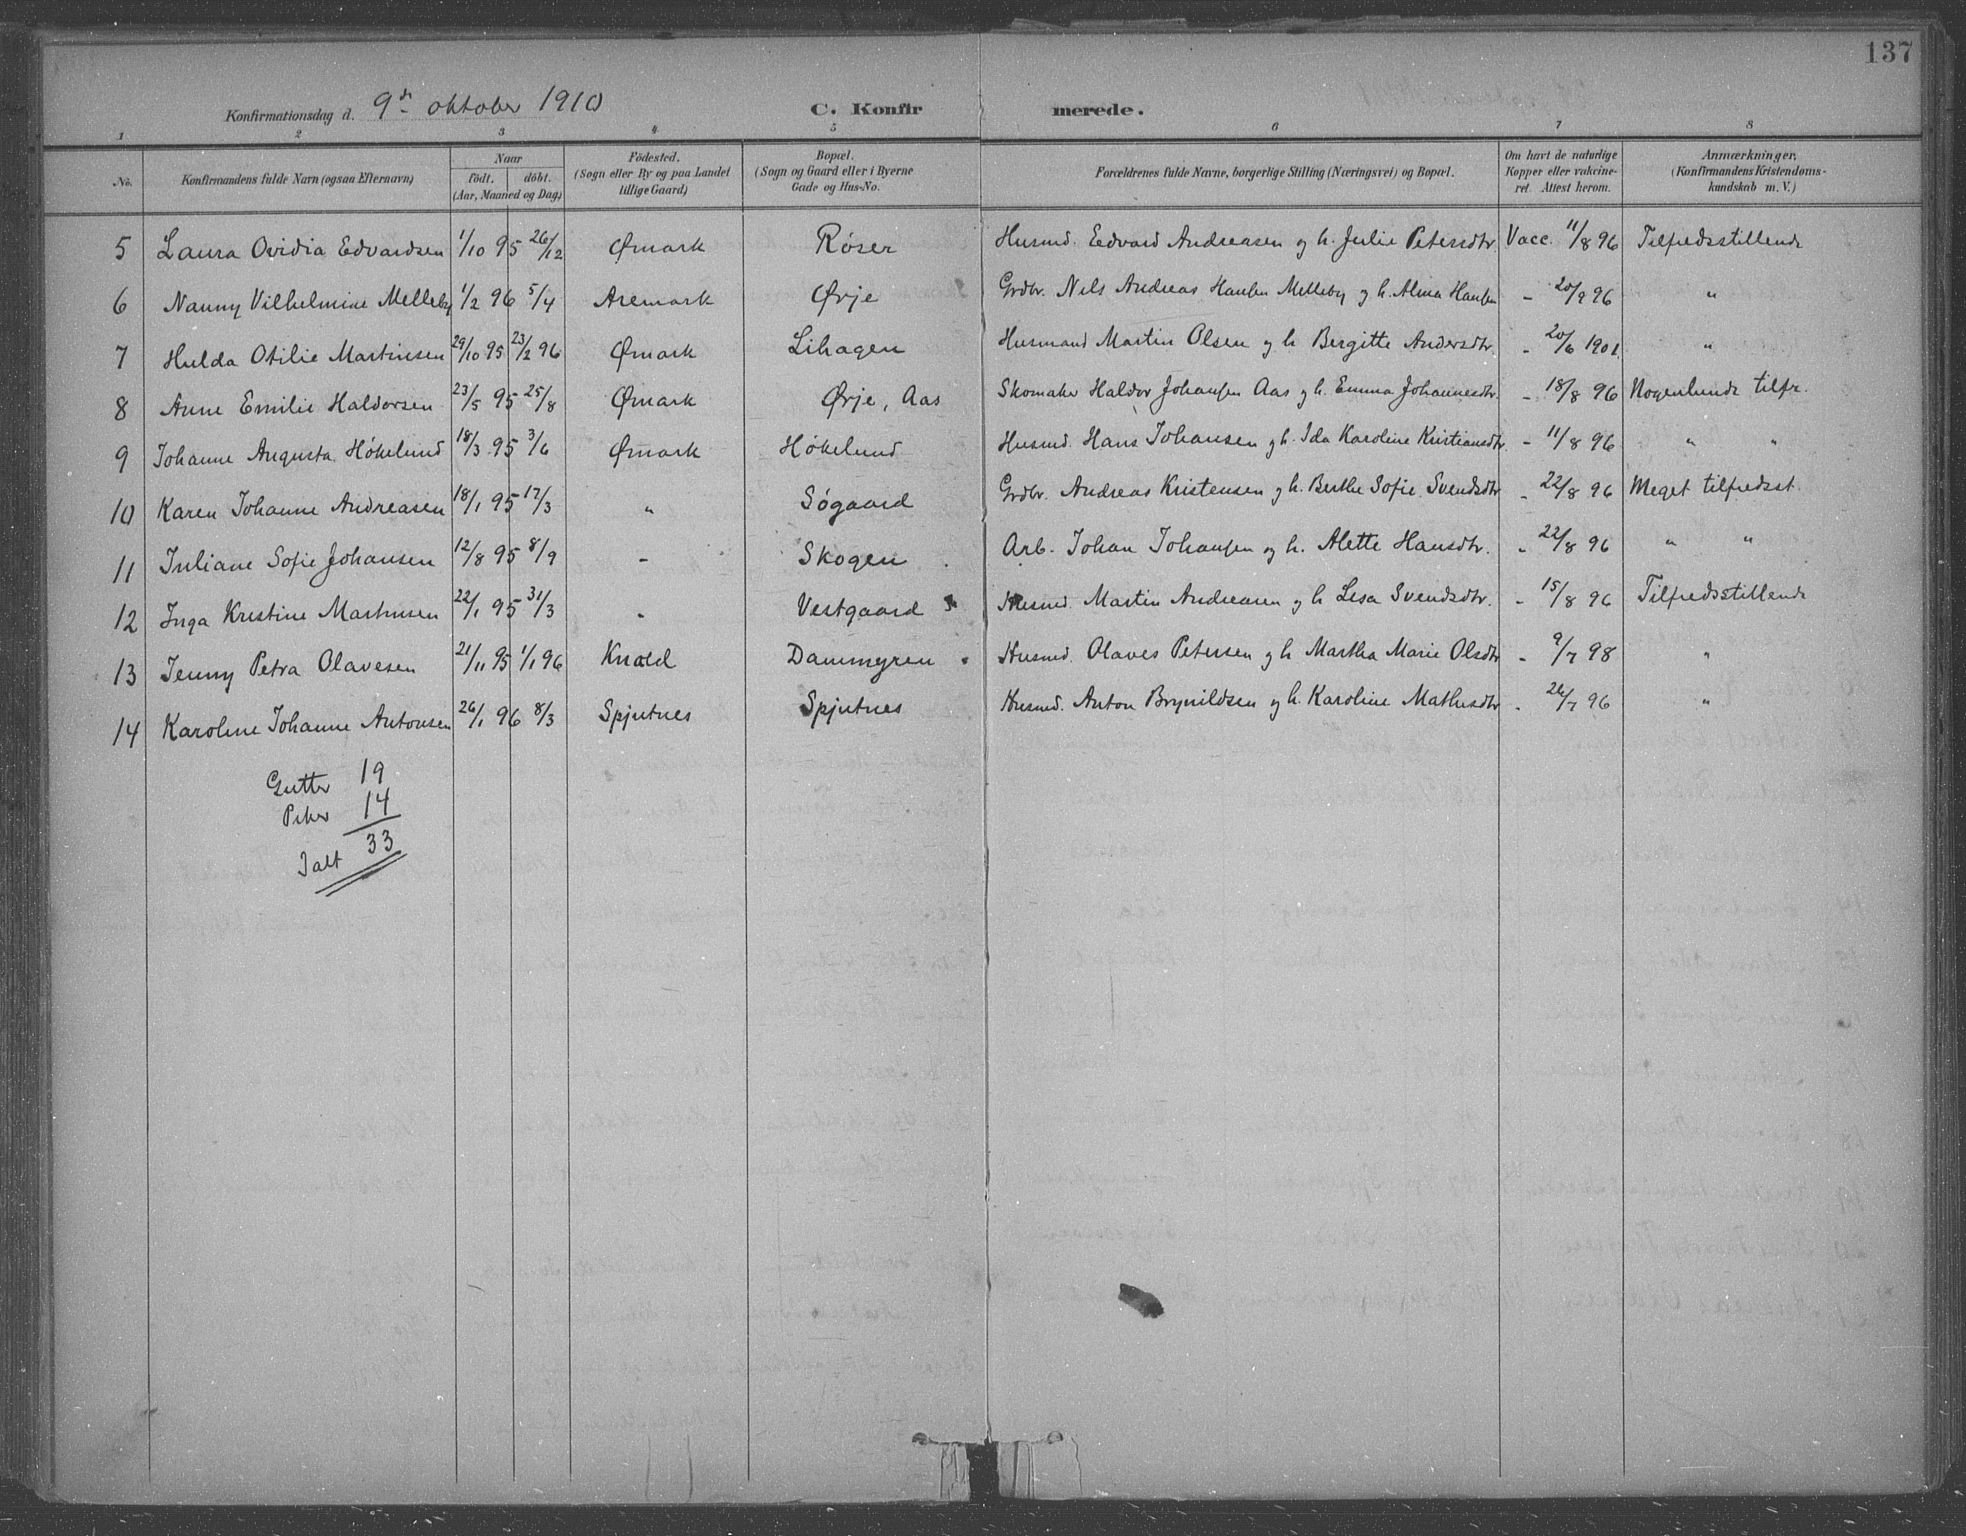 137
Konfirmationsdag d. 9de oktober 1910 C. Konfirmerede.
1 2 3 4 5 6 7 8
No. Konfirmandens fulde Navn (ogsaa Efternavn) Naar födt. döbt. (Aar, Maaned og Dag.) Födested. (Sogn eller By og paa Landet tillige Gaard) Bopæl. (Sogn og Gaard eller i Byerne Gade og Hus-No. Forældrenes fulde Navne, borgerlige Stilling (Næringsvei) og Bopæl. Om havt de naturlige Kopper eller vakcineret. Attest herom. Anmærkninger, (Konfirmandens Kristendomskundskab m. V.)
5 Laura Ovidia Edvardsen 1/10 95 26/12 Ømark Røser Husmd. Edvard Andreasen og h. Julie Petersdtr. Vacc. 11/8 96 Tilfredsstillende
6 Nanny Vilhelmine Melleby 1/2 96 5/4 Aremark Ørje Grdbr. Nils Andreas Hansen Melleby og h. Alma Hansen - 20/2 96 "
7 Hulda Otilie Martinsen 29/10 95 23/2 96 Ømark Lihagen Husmand Martin Olsen og h. Bergitte Andersdtr. - 20/6 1901 "
8 Anne Emilie Haldorsen 23/5 95 25/8 Ømark Ørje, Aas Skomaker Haldor Johansen Aas og h. Emma Johannesdtr. - 18/8 96 Nogenlunde tilfr.
9 Johanne Augusta Høkelund 18/3 95 3/6 Ømark Høkelund Husmd. Hans Johansen og h. Ida Karoline Kristiansdtr - 11/8 96 " "
10 Karen Johanne Andreasen 18/1 95 17/3 " Søgaard Grdbr. Andreas Kristensen og h. Berthe Sofie Svendsdtr - 22/8 96 Meget tilfredsst.
11 Juliane Sofie Johansen 12/8 95 8/9 - Skogen Arb. Johan Johansen og h. Alette Hansdtr. - 22/8 96 " "
12 Inga Kristine Martinsen 22/1 95 31/3 - Vestgaard Husmd. Martin Andreasen og h Lesa Svendsdtr. - 15/8 96 Tilfredsstillende
13 Jenny Petra Olavesen 21/11 95 1/1 96 Knold Dammyren Husmd. Olaves Petersen og h. Martha Marie Olsdtr - 9/7 98 "
14 Karoline Johanne Antonsen 26/1 96 8/3 Spjutnes Spjutnes Husmd. Anton Brynildsen og h. Karoline Mathisdtr - 26/7 96 "
Gutter 19
Piker 14
Ialt 33